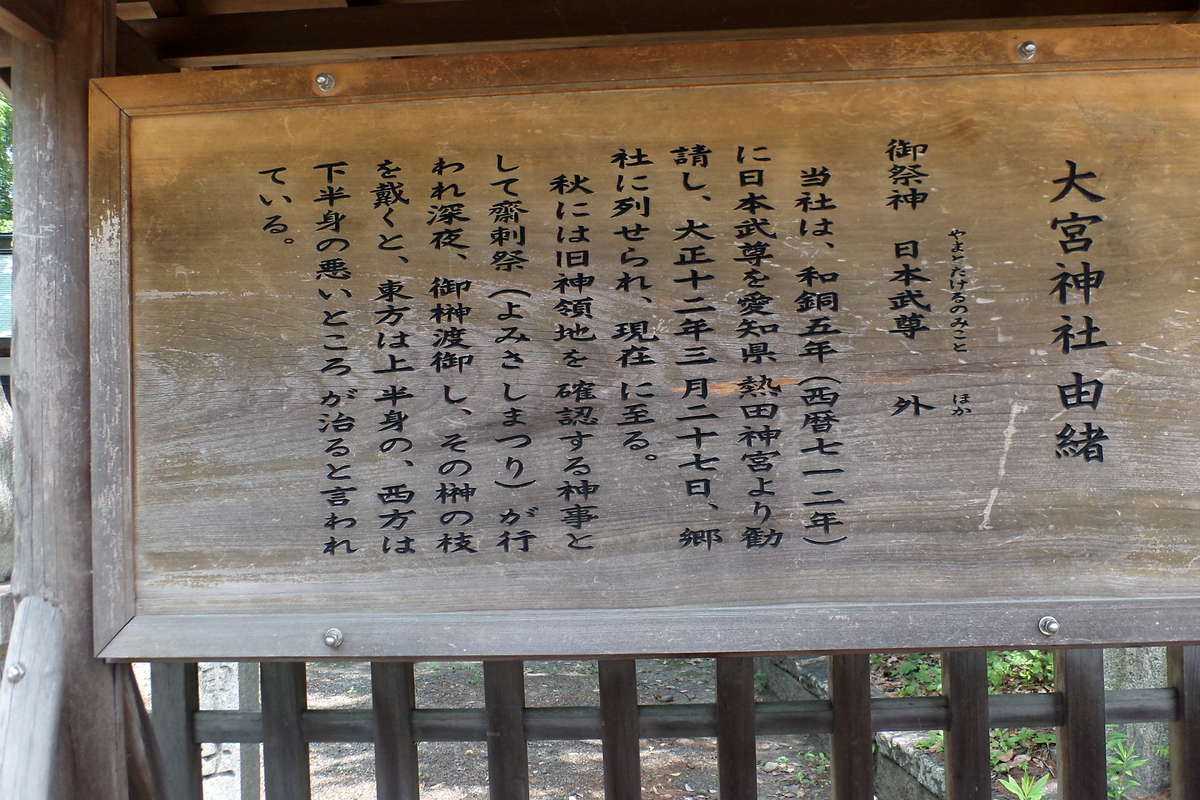 大宮神社由緒
やまとたけるのみこと ほか
御祭神 日本武尊 外
当社は、和銅五年(西暦七一二年)
に日本武尊を愛知県熱田神宮より勧
請し、大正十二年三月二十七日、郷
社に列せられ、現在に至る。
秋には旧神領地を確認する神事と
して齋刺祭(よみさしまつり)が行
われ深夜、御榊渡御し、その榊の枝
を戴くと、東方は上半身の、西方は
下半身の悪いところが治ると言われ
ている。